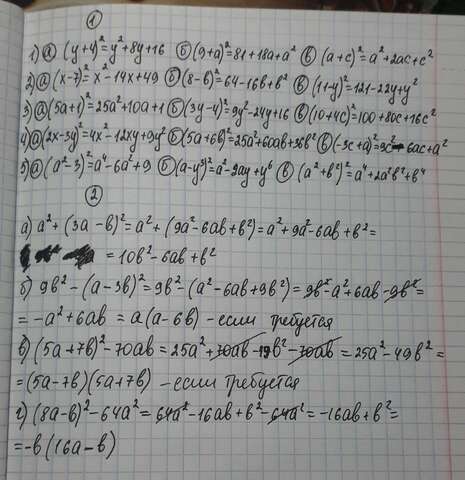 ①
1) ⓐ (y+4)²=y²+8y+16 ⓑ (9+a)²=81+18a+a² ⓑ (a+c)²=a²+2ac+c²
2) ⓐ (x-7)²=x²-14x+49 ⓑ (8-b)²=64-16b+b² ⓑ (11-y)²=121-22y+y²
3) ⓐ (5a+1)²=25a²+10a+1 ⓑ (3y-4)²=9y²-24y+16 ⓑ (10+4c)²=100+80c+16c²
4) ⓐ (2x-3y)²=4x²-12xy+9y² ⓑ (5a+6b)²=25a²+60ab+36b² ⓑ (-3c+a)²=9c²-6ac+a²
5) ⓐ (a²-3)²=a⁴-6a²+9 ⓑ (a-y³)²=a²-2ay+y⁶ ⓑ (a²+b²)²=a⁴+2a²b²+b⁴
②
а) a²+(3a-b)²=a²+(9a²-6ab+b²)=a²+9a²-6ab+b²=
=10b²-6ab+b²
б) 9b²-(a-3b)²=9b²-(a²-6ab+9b²)=9b²-a²+6ab-9b²=
=-a²+6ab=a(a-6b) - если требуется
в) (5a+7b)²-70ab=25a²+70ab-49b²-70ab=25a²-49b²=
=(5a-7b)(5a+7b) - если требуется
г) (8a-b)²-64a²=64a²-16ab+b²-64a²=-16ab+b²=
=-b(16a-b)